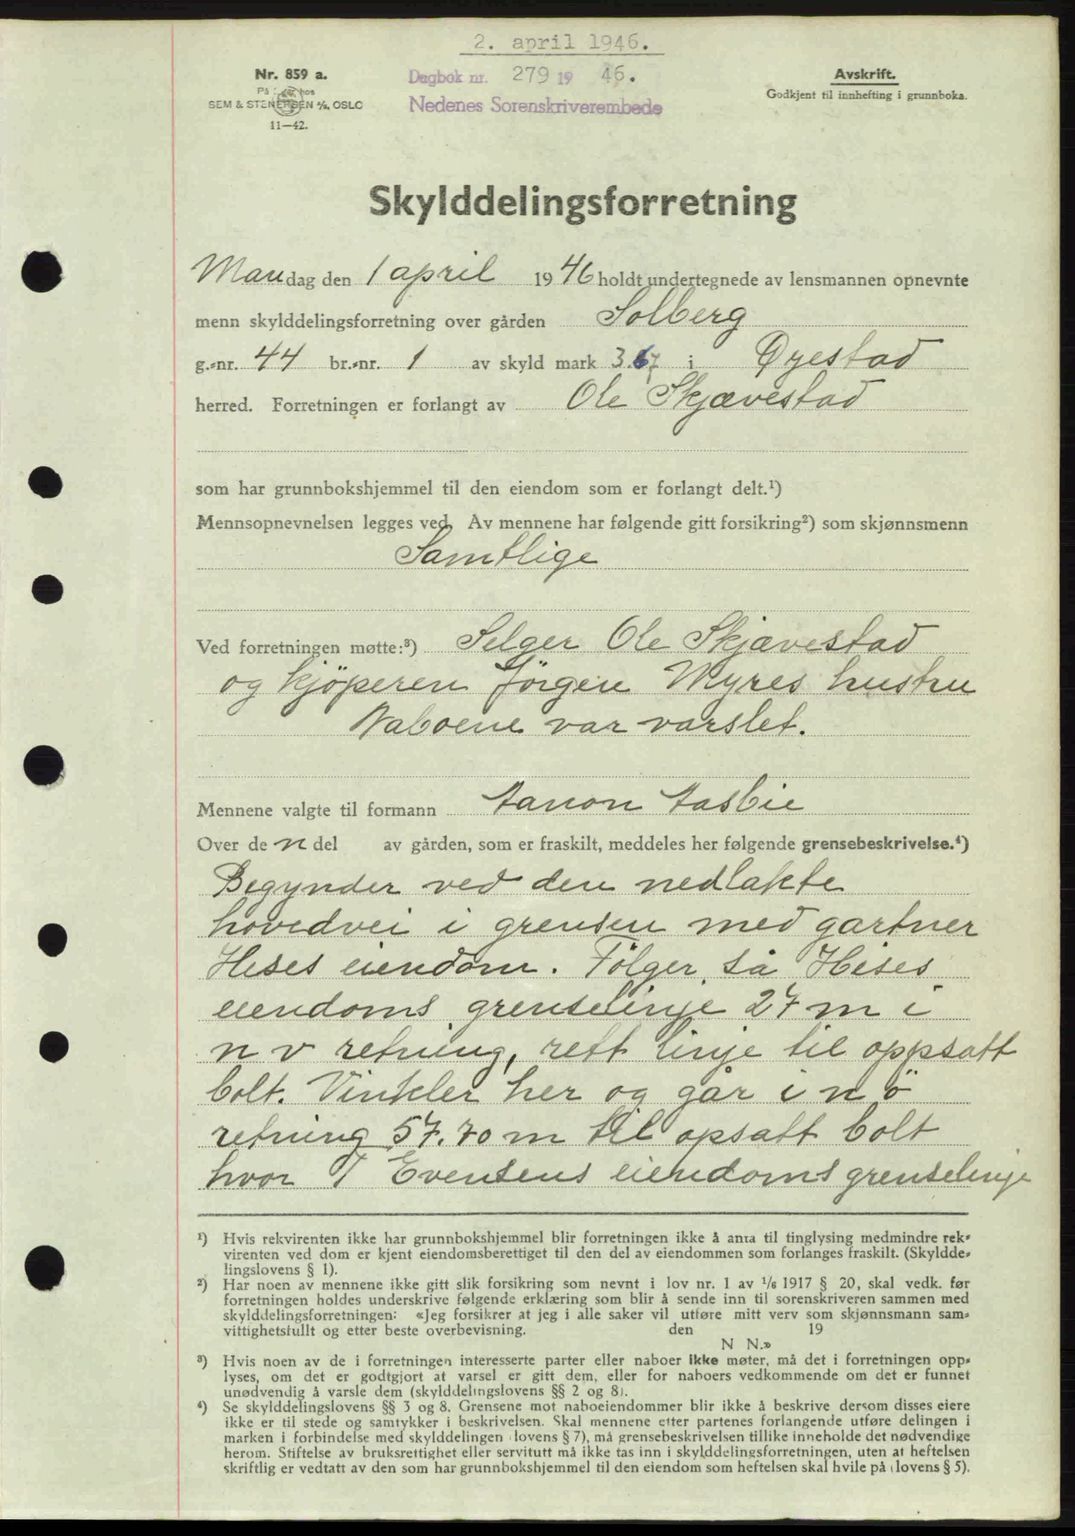 2. april 1946.
Nr. 859 a.
På hos
SEM & STENERSEN A/S, OSLO
11—42.
Dagbok nr. 279 19 46.
Nedenes Sorenskriverembede
Avskrift.
Godkjent til innhefting i grunnboka.
Skylddelingsforretning
Mandag den 1 april 1946 holdt undertegnede av lensmannen opnevnte
menn skylddelingsforretning over gården Solberg
g.-nr. 44 br.-nr. 1 av skyld mark 3.67 i Øyestad
herred. Forretningen er forlangt av Ole Skjævestad
som har grunnbokshjemmel til den eiendom som er forlangt delt.¹)
Mennsopnevnelsen legges ved. Av mennene har følgende gitt forsikring²) som skjønnsmenn
Samtlige
Ved forretningen møtte:³) Selger Ole Skjævestad
og kjöperen Jörgen Myres hustru
Naboene var varslet.
Mennene valgte til formann Aanon Aasbie
Over de n del av gården, som er fraskilt, meddeles her følgende grensebeskrivelse.⁴)
Begynder ved den nedlakte
hovedvei i grensen med gartner
Heses eiendom. Fölger så Heses
eiendoms grenselinje 27 m i
n v retning, rett linje til oppsatt
bolt. Vinkler her og går i n ö
retning 57.70 m til opsatt bolt
hvor T Evensens eiendoms grenselinje
¹) Hvis rekvirenten ikke har grunnbokshjemmel blir forretningen ikke å anta til tinglysing medmindre rek-
virenten ved dom er kjent eiendomsberettiget til den del av eiendommen som forlanges fraskilt. (Skyldde-
lingslovens § 1).
²) Har noen av mennene ikke gitt slik forsikring som nevnt i lov nr. 1 av 1/6 1917 § 20, skal vedk. før
forretningen holdes underskrive følgende erklæring som blir å sende inn til sorenskriveren sammen med
skylddelingsforretningen: «Jeg forsikrer at jeg i alle saker vil utføre mitt verv som skjønnsmann sam-
vittighetsfullt og etter beste overbevisning. den 19
N N.»
³) Hvis noen av de i forretningen interesserte parter eller naboer ikke møter, må det i forretningen opp-
lyses, om det er godtgjort at varsel er gitt dem, eller for naboers vedkommende om det er funnet
unødvendig å varsle dem (skylddelingslovens §§ 2 og 8).
⁴) Se skylddelingslovens §§ 3 og 8. Grensene mot naboeiendommer blir ikke å beskrive dersom disses eiere
ikke er til stede og samtykker i beskrivelsen. Skal mennene etter partenes forlangende utføre delingen i
marken i forbindelse med skylddelingen (lovens § 7), må grensebeskrivelsen tillike inneholde det nødvendige
herom. Stiftelse av bruksrettighet eller servitutt må ikke tas inn i skylddelingsforretningen, uten at heftelsen
skriftlig er vedtatt av den som har grunnbokshjemmel til den eiendom som heftelsen skal hvile på (lovens § 5).